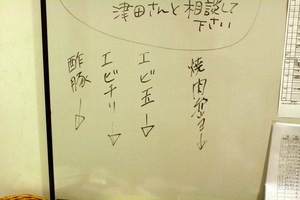 津田さんと相談して
下さい
焼肉
エビ玉
エビチリ
酢豚